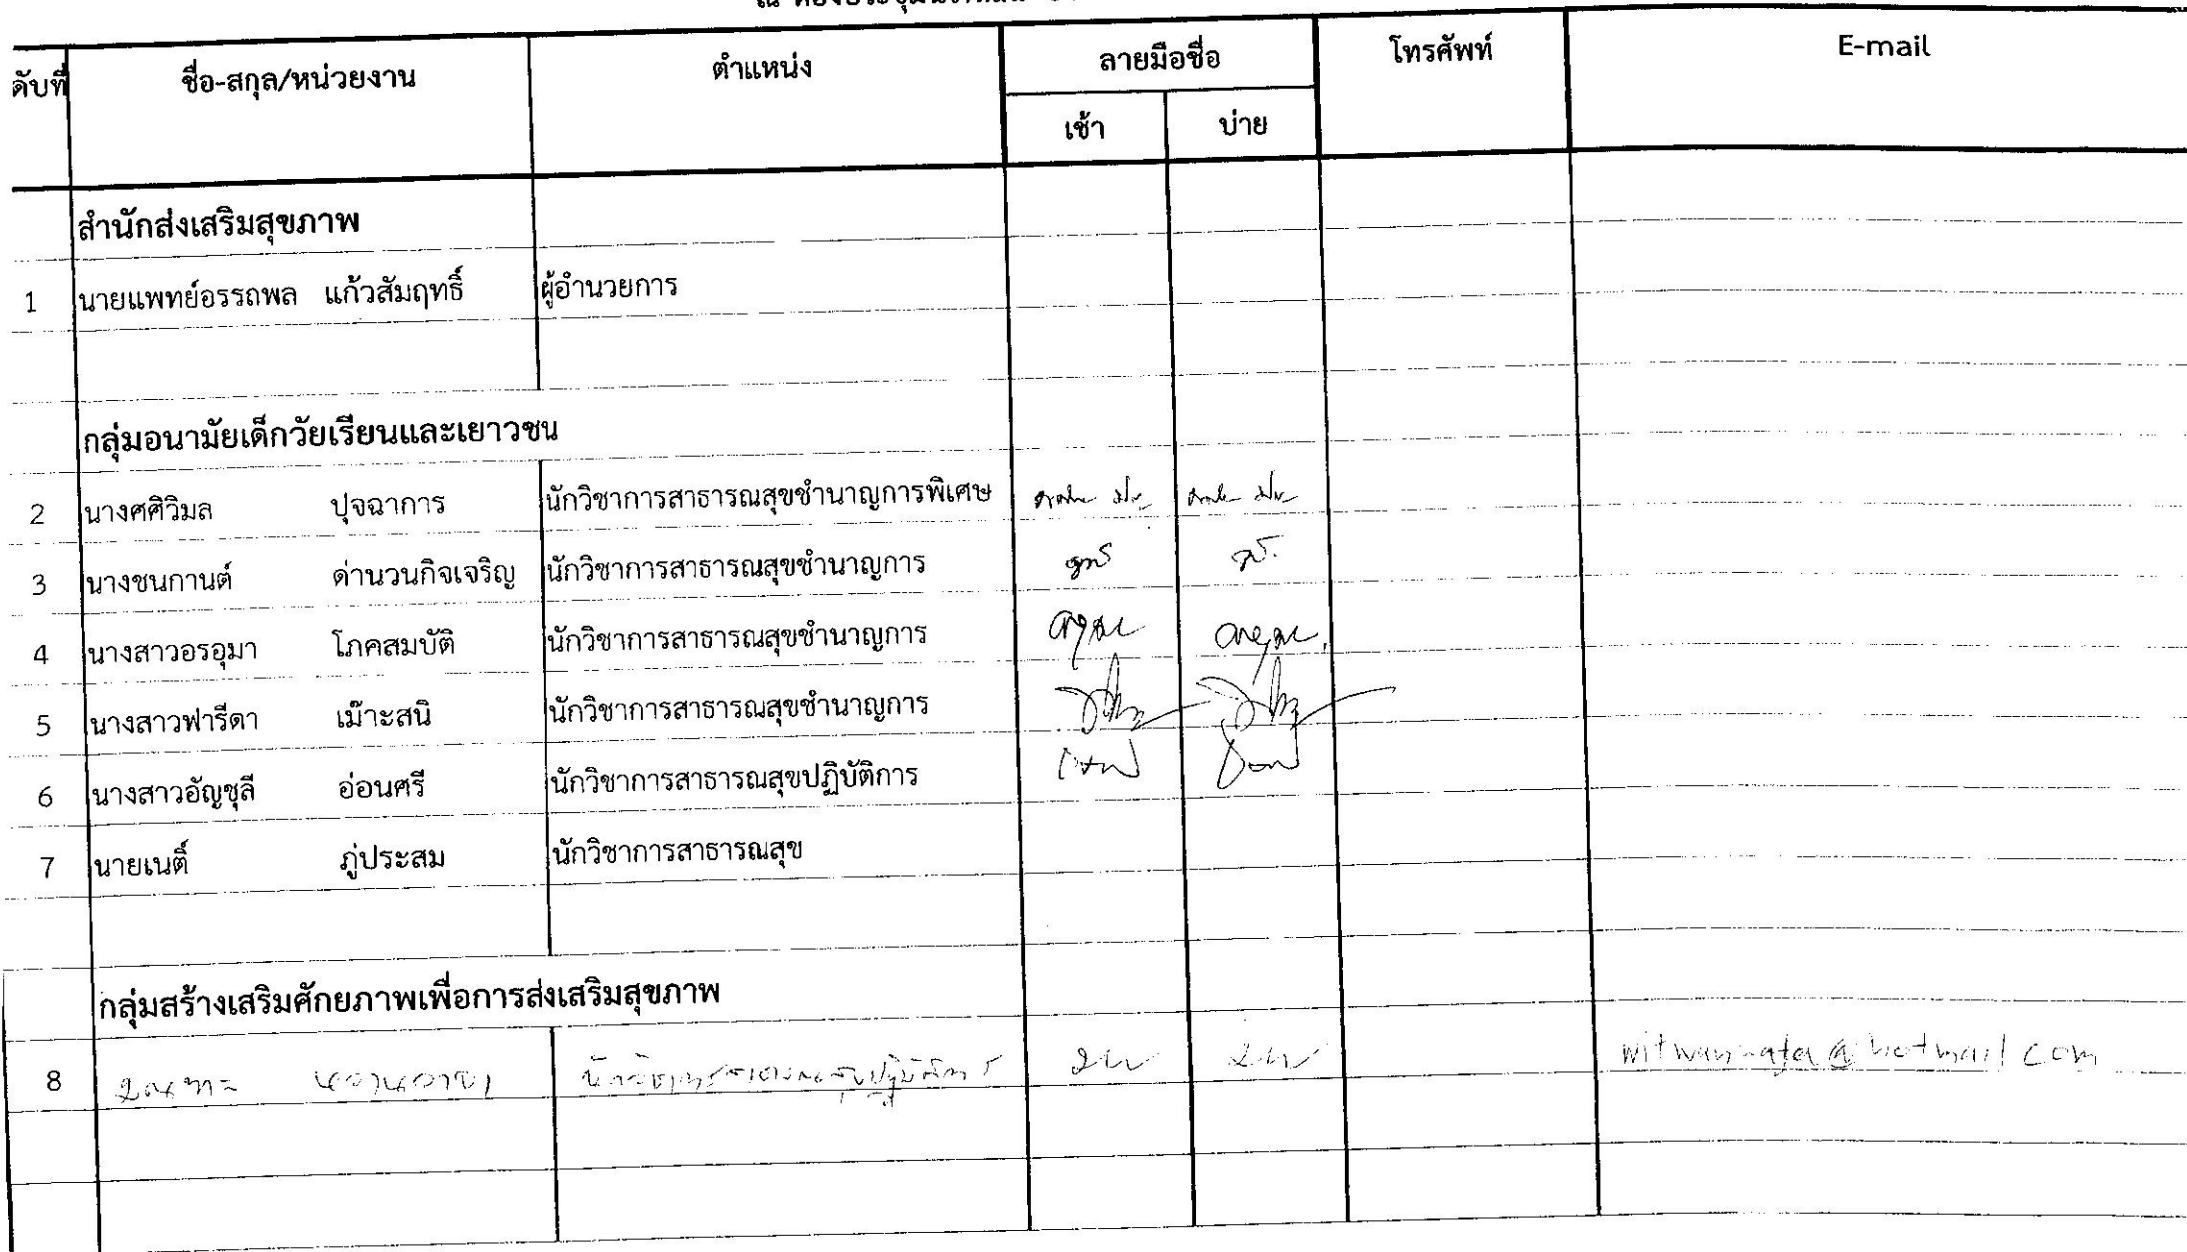 ดับที่ ชื่อ-สกุล/หน่วยงาน ตำแหน่ง ลายมือชื่อ โทรศัพท์ E-mail
เช้า บ่าย
สำนักส่งเสริมสุขภาพ
1 นายแพทย์อรรถพล แก้วสัมฤทธิ์ ผู้อำนวยการ
กลุ่มอนามัยเด็กวัยเรียนและเยาวชน
2 นางศศิวิมล ปุจฉาการ นักวิชาการสาธารณสุขชำนาญการพิเศษ
3 นางชนกานต์ ด่านวนกิจเจริญ นักวิชาการสาธารณสุขชำนาญการ
4 นางสาวอรอุมา โภคสมบัติ นักวิชาการสาธารณสุขชำนาญการ
5 นางสาวฟารีดา เม๊าะสนิ นักวิชาการสาธารณสุขชำนาญการ
6 นางสาวอัญชุลี อ่อนศรี นักวิชาการสาธารณสุขปฏิบัติการ
7 นายเนติ์ ภู่ประสม นักวิชาการสาธารณสุข
กลุ่มสร้างเสริมศักยภาพเพื่อการส่งเสริมสุขภาพ
8 นักวิชาการสาธารณสุขปฏิบัติการ